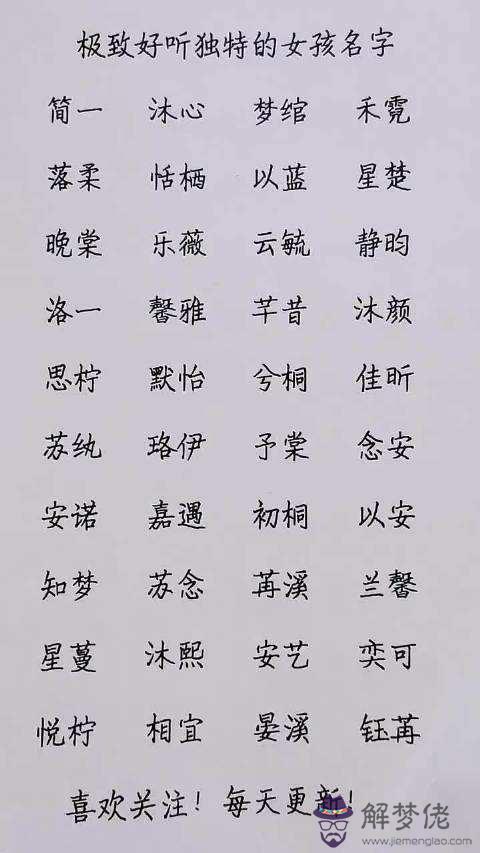 极致好听独特的女孩名字
简一 沐心 梦绾 禾霓
落柔 恬栖 以蓝 星楚
晚棠 乐薇 云毓 静昀
洛一 馨雅 芊昔 沐颜
思柠 默怡 兮桐 佳昕
苏纨 珞伊 予棠 念安
安诺 嘉遇 初桐 以安
知梦 苏念 苒溪 兰馨
星蔓 沐熙 安艺 奕可
悦柠 相宜 晏溪 钰苒
喜欢关注！每天更新！
解梦佬
www.jiemenglao.com